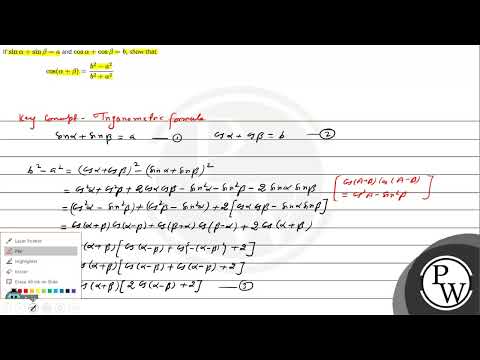 If sin α + sin β = a and cos α + cos β = b, show that
cos(α + β) = (b² − a²)/(b² + a²)
Key Concept - Trigonometric formula
Sinα + Sinβ = a —— ① Cosα + Cosβ = b —— ②
b² - a² = (Cosα + Cosβ)² - (Sinα + Sinβ)²
= Cos²α + Cos²β + 2 Cosα Cosβ - Sin²α - Sin²β - 2 Sinα Sinβ
[Cos(A-B) Cos(A-B)
= (Cos²α - Sin²β) + (Cos²β - Sin²α) + 2[Cosα Cosβ - Sinα Sinβ]
= Cos²A - Sin²B]
= Cos(α+β) Cos(α-β) + Cos(β+α) Cos(β-α) + 2 Cos(α+β)
(α+β) [Cos(α-β) + Cos{-(α-β)} + 2]
s(α+β) [Cos(α-β) + Cos(α-β) + 2]
s(α+β) [2 Cos(α-β) + 2] —— ③
Laser Pointer
Pen
Highlighter
Eraser
Erase All Ink on Slide
PW